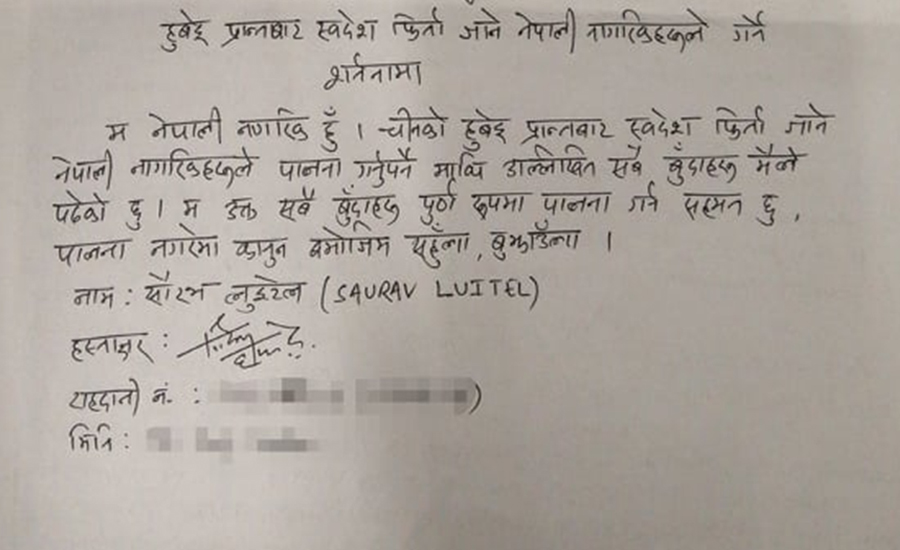 हुबेइ प्रान्तबाट स्वदेश फिर्ता जाने नेपाली नागरिकहरूले गर्ने
शर्तनामा
म नेपाली नगरिक हुँ । चीनको हुबेइ प्रान्तबाट स्वदेश फिर्ता जाने
नेपाली नागरिकहरूले पालना गर्नुपर्ने माथि उल्लिखित सबै बुँदाहरू मैले
पढेको छु । म उक्त सबै बुँदाहरू पुर्ण रूपमा पालना गर्न सहमत छु ,
पालना नगरेमा कानुन बमोजिम सहुँला , बुझाउँला ।
नाम : सौरभ लुइटेल (SAURAV LUITEL)
हस्ताक्षर :
राहदानी नं. : )
मिति :